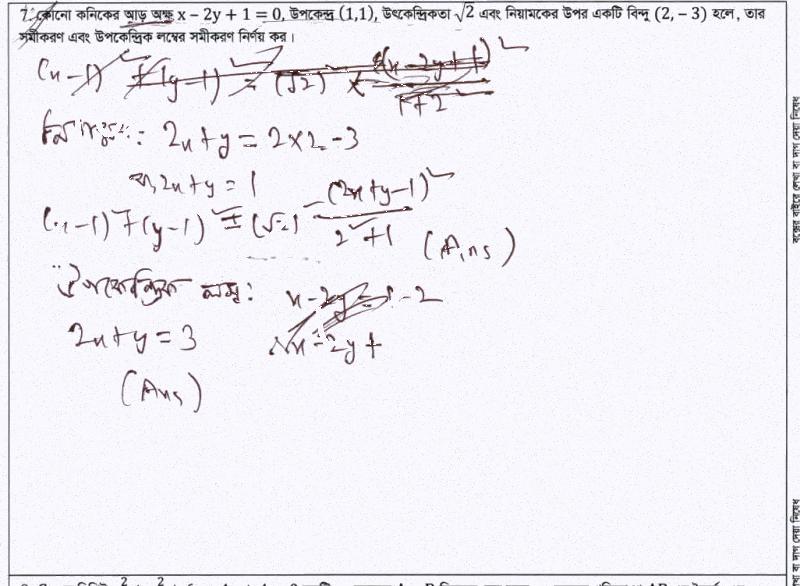 7. কোনো কনিকের আড় অক্ষ x − 2y + 1 = 0, উপকেন্দ্র (1,1), উৎকেন্দ্রিকতা √2 এবং নিয়ামকের উপর একটি বিন্দু (2, − 3) হলে, তার
সমীকরণ এবং উপকেন্দ্রিক লম্বের সমীকরণ নির্ণয় কর।
নিয়ামক: 2x + y = 2×2 - 3
বা, 2x + y = 1
(x-1)² + (y-1)² = (√2)² (2x+y-1)² / 2²+1 (Ans)
উপকেন্দ্রিক লম্ব: x - 2y = 1 - 2
2x + y = 3 x - 2y +
(Ans)
বক্সের বাইরে লেখা বা দাগ দেয়া নিষেধ
বা দাগ দেয়া নিষেধ